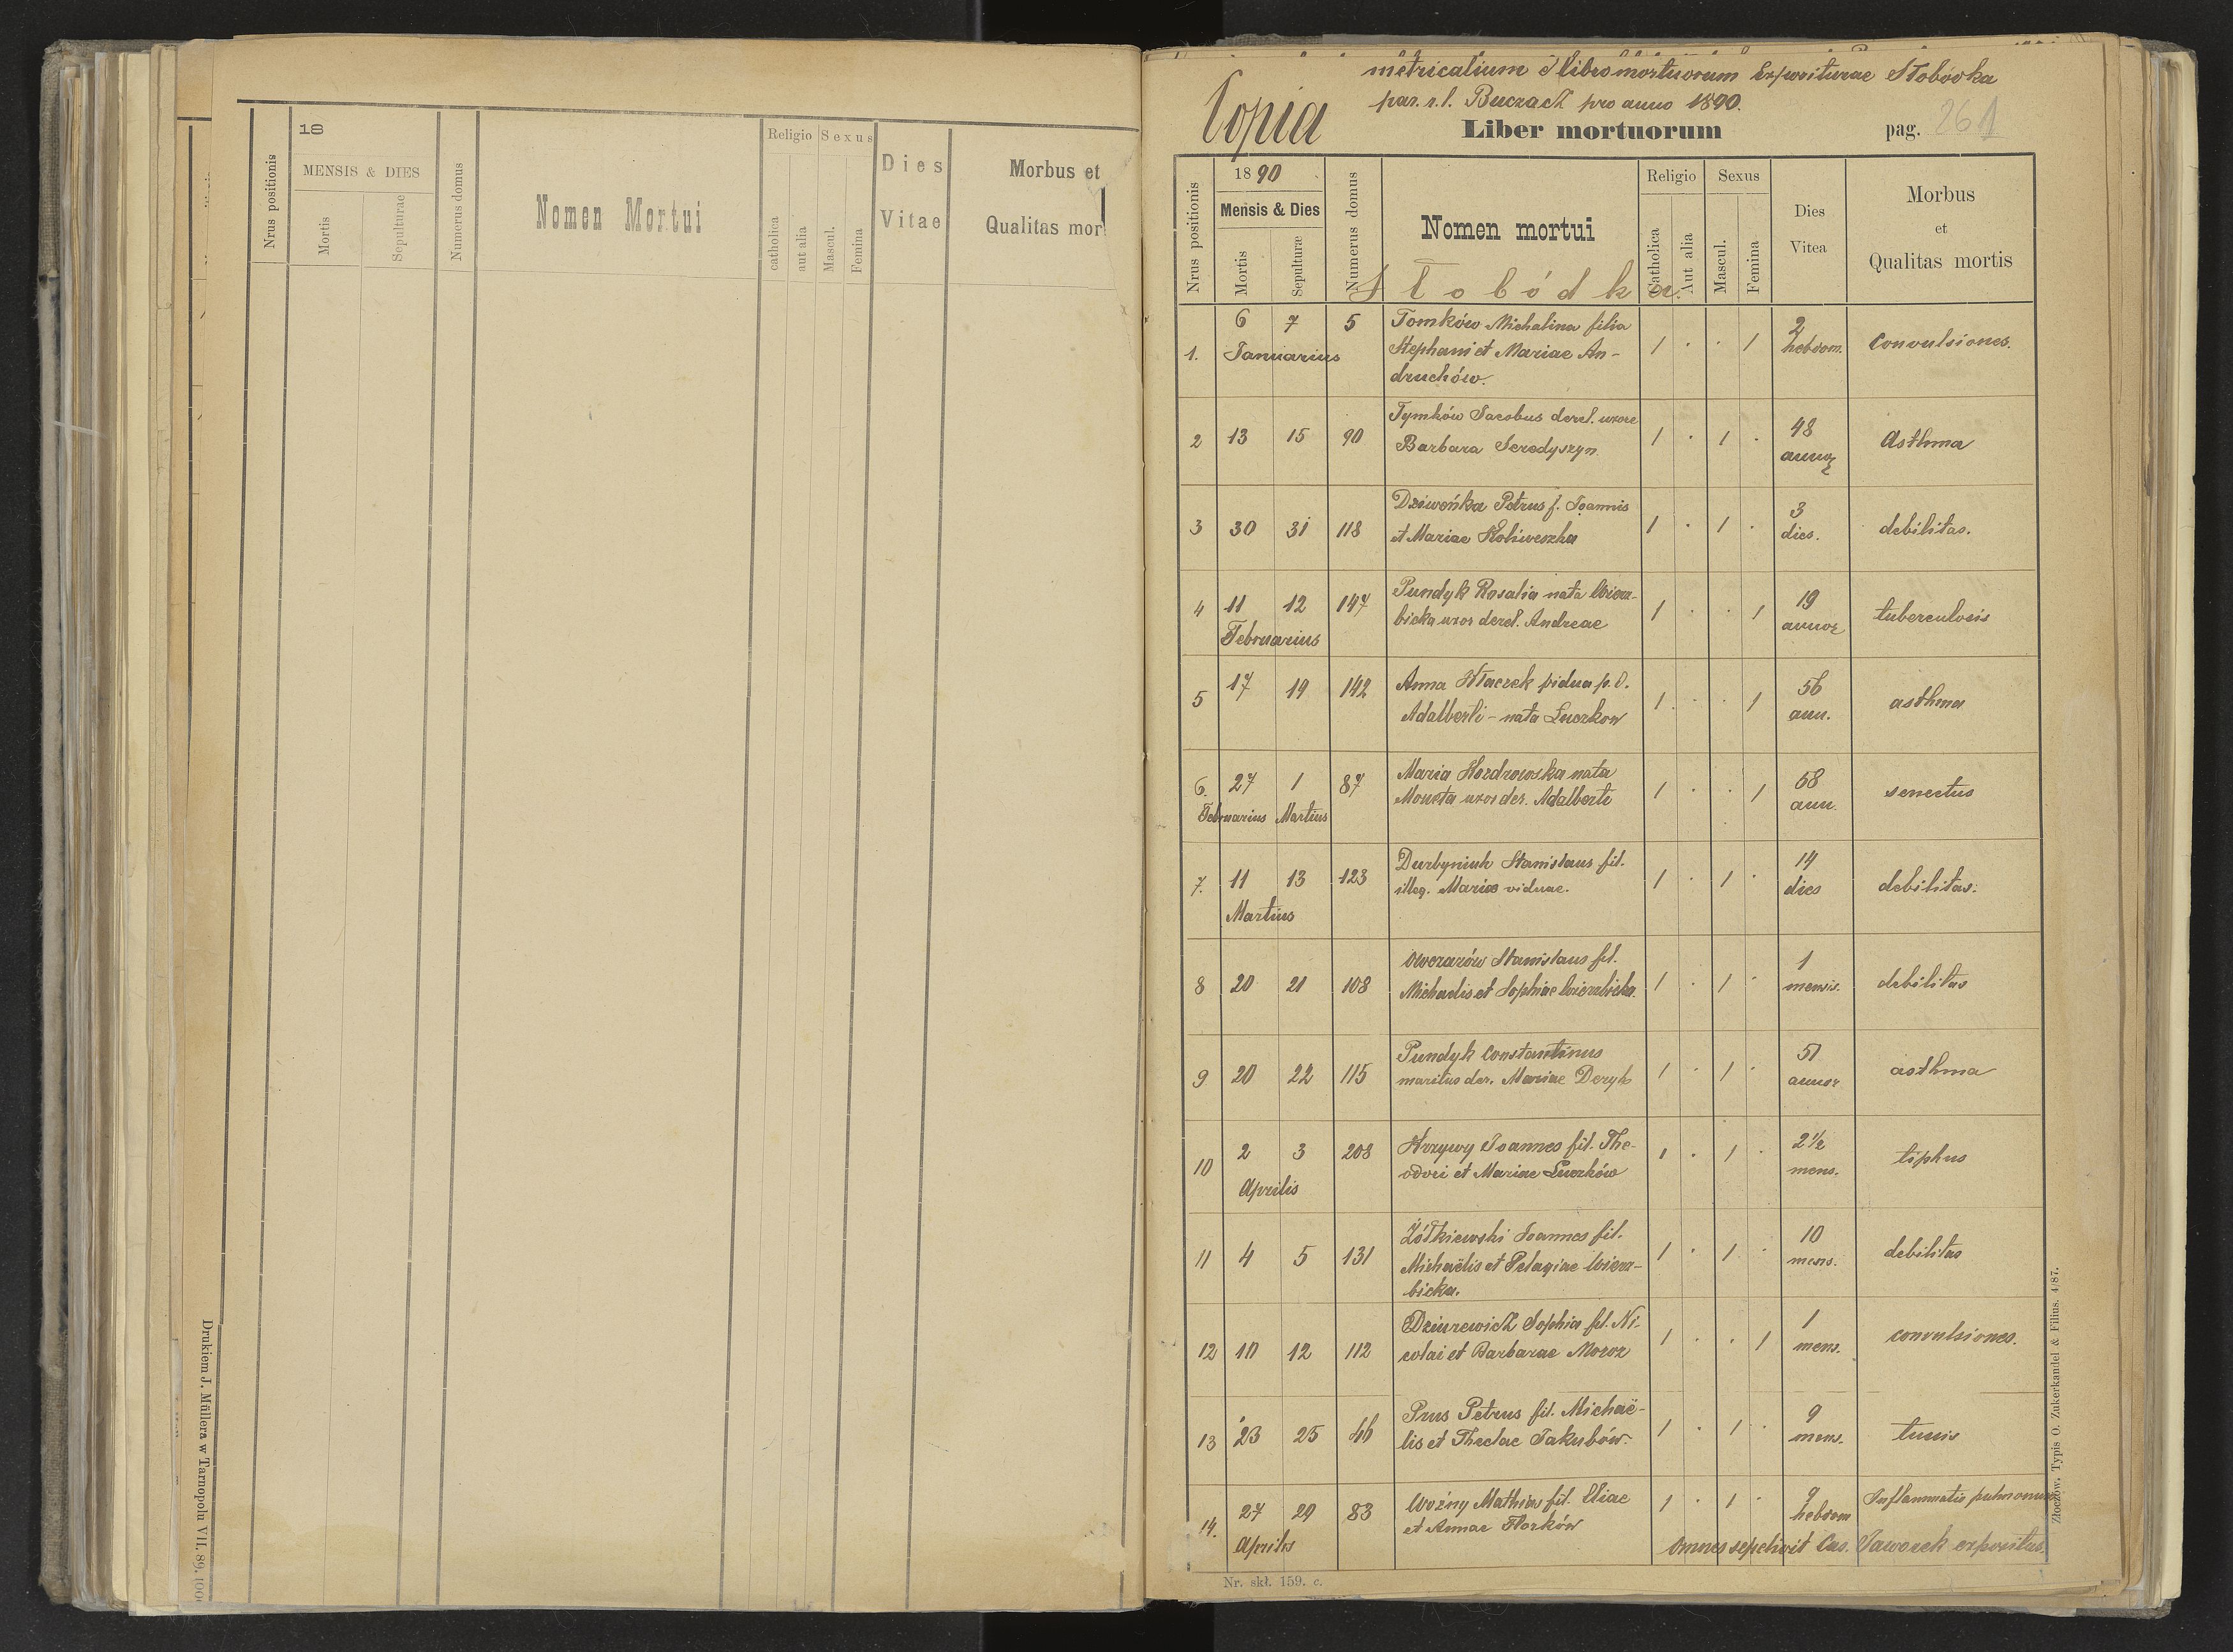 18
MENSIS & DIES
Nrus positionis
Mortis
Sepulturae
Numerus domus
Nomen Mortui
Religio
Sexus
catholica
aut alia
Mascul.
Femina
Dies
Vitae
Morbus et
Qualitas mor
Drukiem J. Müllera w Tarnopolu VII. 89.
metricalium e libro mortuorum Expositurae Słobódka
par. r. l. Buczacz pro anno 1890.
Copia
Liber mortuorum
pag. 261
Nrus positionis
1890
Mensis & Dies
Mortis
Sepulturæ
Numerus domus
Nomen mortui
Religio
Sexus
Catholica
Aut alia
Mascul.
Femina
Dies
Vitea
Morbus
et
Qualitas mortis
Słobódka.
1. 6 7 5 Tomków Michalina filia 1 . . 1 2 Convulsiones.
Januarius Stephani et Mariae An- hebdom.
druchów.
2 13 15 90 Tymków Jacobus derel. uxore 1 . 1 . 48 Asthma
Barbara Seredyszyn annor
3 30 31 118 Dziwońka Petrus f. Joannis 1 . 1 . 3 debilitas.
et Mariae dies.
4 11 12 147 Pundyk Rosalia nata Wierz- 1 . . 1 19 tuberculosis
Februarius bicka uxor derel. Andreae annor
5 17 19 142 Anna Tkaczek vidua p. 1 . . 1 56 asthma
Adalberti - nata Luczkow ann.
6. 27 1 87 Maria nata 1 . . 1 68 senectus
Februarius Martius Moneta uxor der. Adalberti ann.
7. 11 13 123 Durbyniuk Stanislaus fil. 1 . 1 . 14 debilitas.
Martius illeg. Mariae viduae. dies
8 20 21 108 Owczarów Stanislaus fil. 1 . 1 . 1 debilitas
Michaelis et Sophiae Wierzbicka. mensis.
9 20 22 115 Pundyk Constantinus 1 . 1 . 51 asthma
maritus der. Mariae Deryk annor
10 2 3 208 Krzywy Joannes fil. The- 1 . 1 . 2 1/2 tiphus
Aprilis odori et Mariae Luczków mens.
11 4 5 131 Żółkiewski Joannes fil. 1 . 1 . 10 debilitas
Michaëlis et Pelagiae Wierz- mens.
bicka.
12 10 12 112 Dziurewicz Sophia fil. Ni- 1 . . 1 1 convulsiones.
colai et Barbarae Moroz mens.
13 23 25 46 Prus Petrus fil. Michaë- 1 . 1 . 9 tussis
lis et Theclae Jakubów. mens.
14. 27 29 83 Woźny Mathias fil. Eliae 1 . 1 . 9 Inflammatio pulmonum
Aprilis et Annae Florków hebdom
Omnes sepelivit Cas. Jaworek expositus.
Nr. skł. 159. c.
Złoczów, Typis O. Zukerkandel & Filius. 4/87.